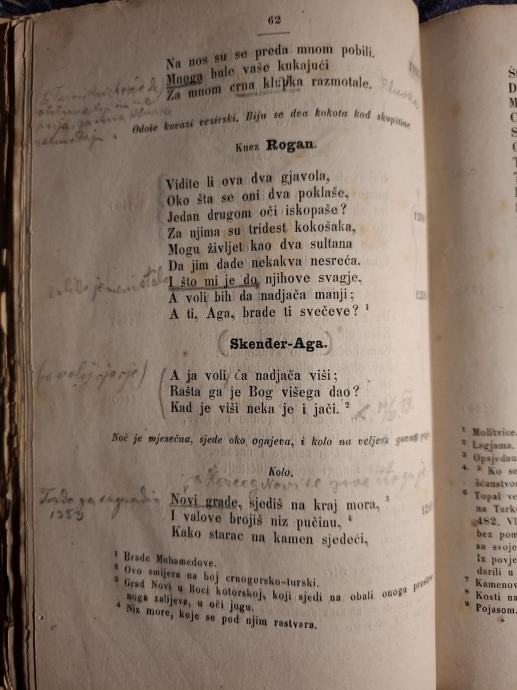 62
Na nos su se preda mnom pobili.
Mnoga bule vaše kukajući
Za mnom crna klupka razmotale.
Odoše kavazi vezirski. Biju se dva kokota kod skupštine
Knez Rogan.
Vidite li ova dva gjavola,
Oko šta se oni dva poklaše,
Jedan drugom oči iskopaše?
Za njima su tridest kokošaka,
Mogu življet kao dva sultana
Da jim dade nekakva nesreća.
I što mi je do njihove svagje,
A voli bih da nadjača manji;
A ti, Aga, brade ti svečeve? 1
Skender-Aga.
A ja voli ća nadjača viši;
Rašta ga je Bog višega dao?
Kad je viši neka je i jači. 2
Noć je mjesečna, sjede oko ognjeva, i kolo na veljem guvnu
Kolo.
Novi grade, sjediš na kraj mora, 3
I valove brojiš niz pučinu, 4
Kako starac na kamen sjedeći,
1 Brade Muhamedove.
2 Ovo smijera na boj crnogorsko-turski.
3 Grad Novi u Boci kotorskoj, koji sjedi na obali onoga
noga zalijeva, u oči jugu.
4 Niz more, koje se pod njim rastvara.
1 Molitvice.
2 Lagjama.
3 Opsjednu
4 5 Ko se
šćanstvom
6 Topal ve
na Turko
482. Vl
bez pom
sa svoje
Iz povje
darili u
7 Kamenov
8 Kosti na
9 Pojasom.